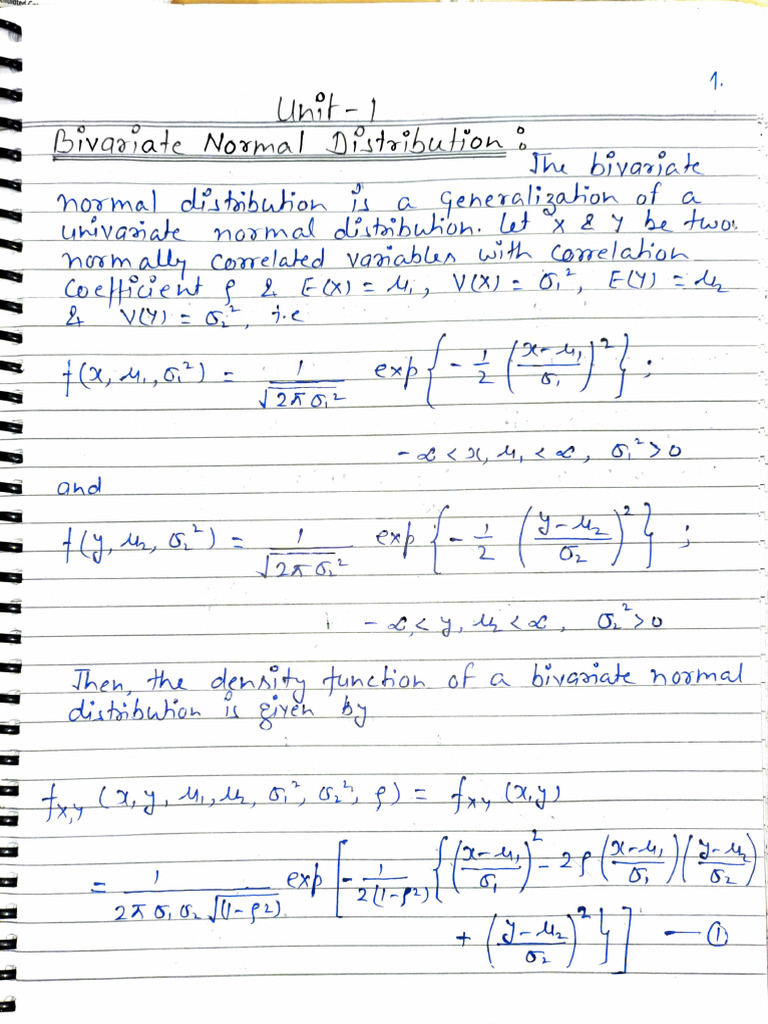 1.
Unit - 1
Bivariate Normal Distribution :
The bivariate
normal distribution is a generalization of a
univariate normal distribution. Let X & Y be two
normally correlated variables with correlation
coefficient ρ & E(X) = μ₁, V(X) = σ₁², E(Y) = μ₂
& V(Y) = σ₂², i.e
f(x, μ₁, σ₁²) = 1/√(2π σ₁²) exp{ - 1/2 ((x-μ₁)/σ₁)² } ;
-∞ < x, μ₁ < ∞, σ₁² > 0
and
f(y, μ₂, σ₂²) = 1/√(2π σ₂²) exp{ - 1/2 ((y-μ₂)/σ₂)² } ;
-∞ < y, μ₂ < ∞, σ₂² > 0
Then, the density function of a bivariate normal
distribution is given by
f_{X,Y} (x, y, μ₁, μ₂, σ₁², σ₂², ρ) = f_{X,Y} (x, y)
= 1/(2π σ₁ σ₂ √(1-ρ²)) exp[ - 1/(2(1-ρ²)) { ((x-μ₁)/σ₁)² - 2ρ ((x-μ₁)/σ₁) ((y-μ₂)/σ₂)
+ ((y-μ₂)/σ₂)² } ] — ①